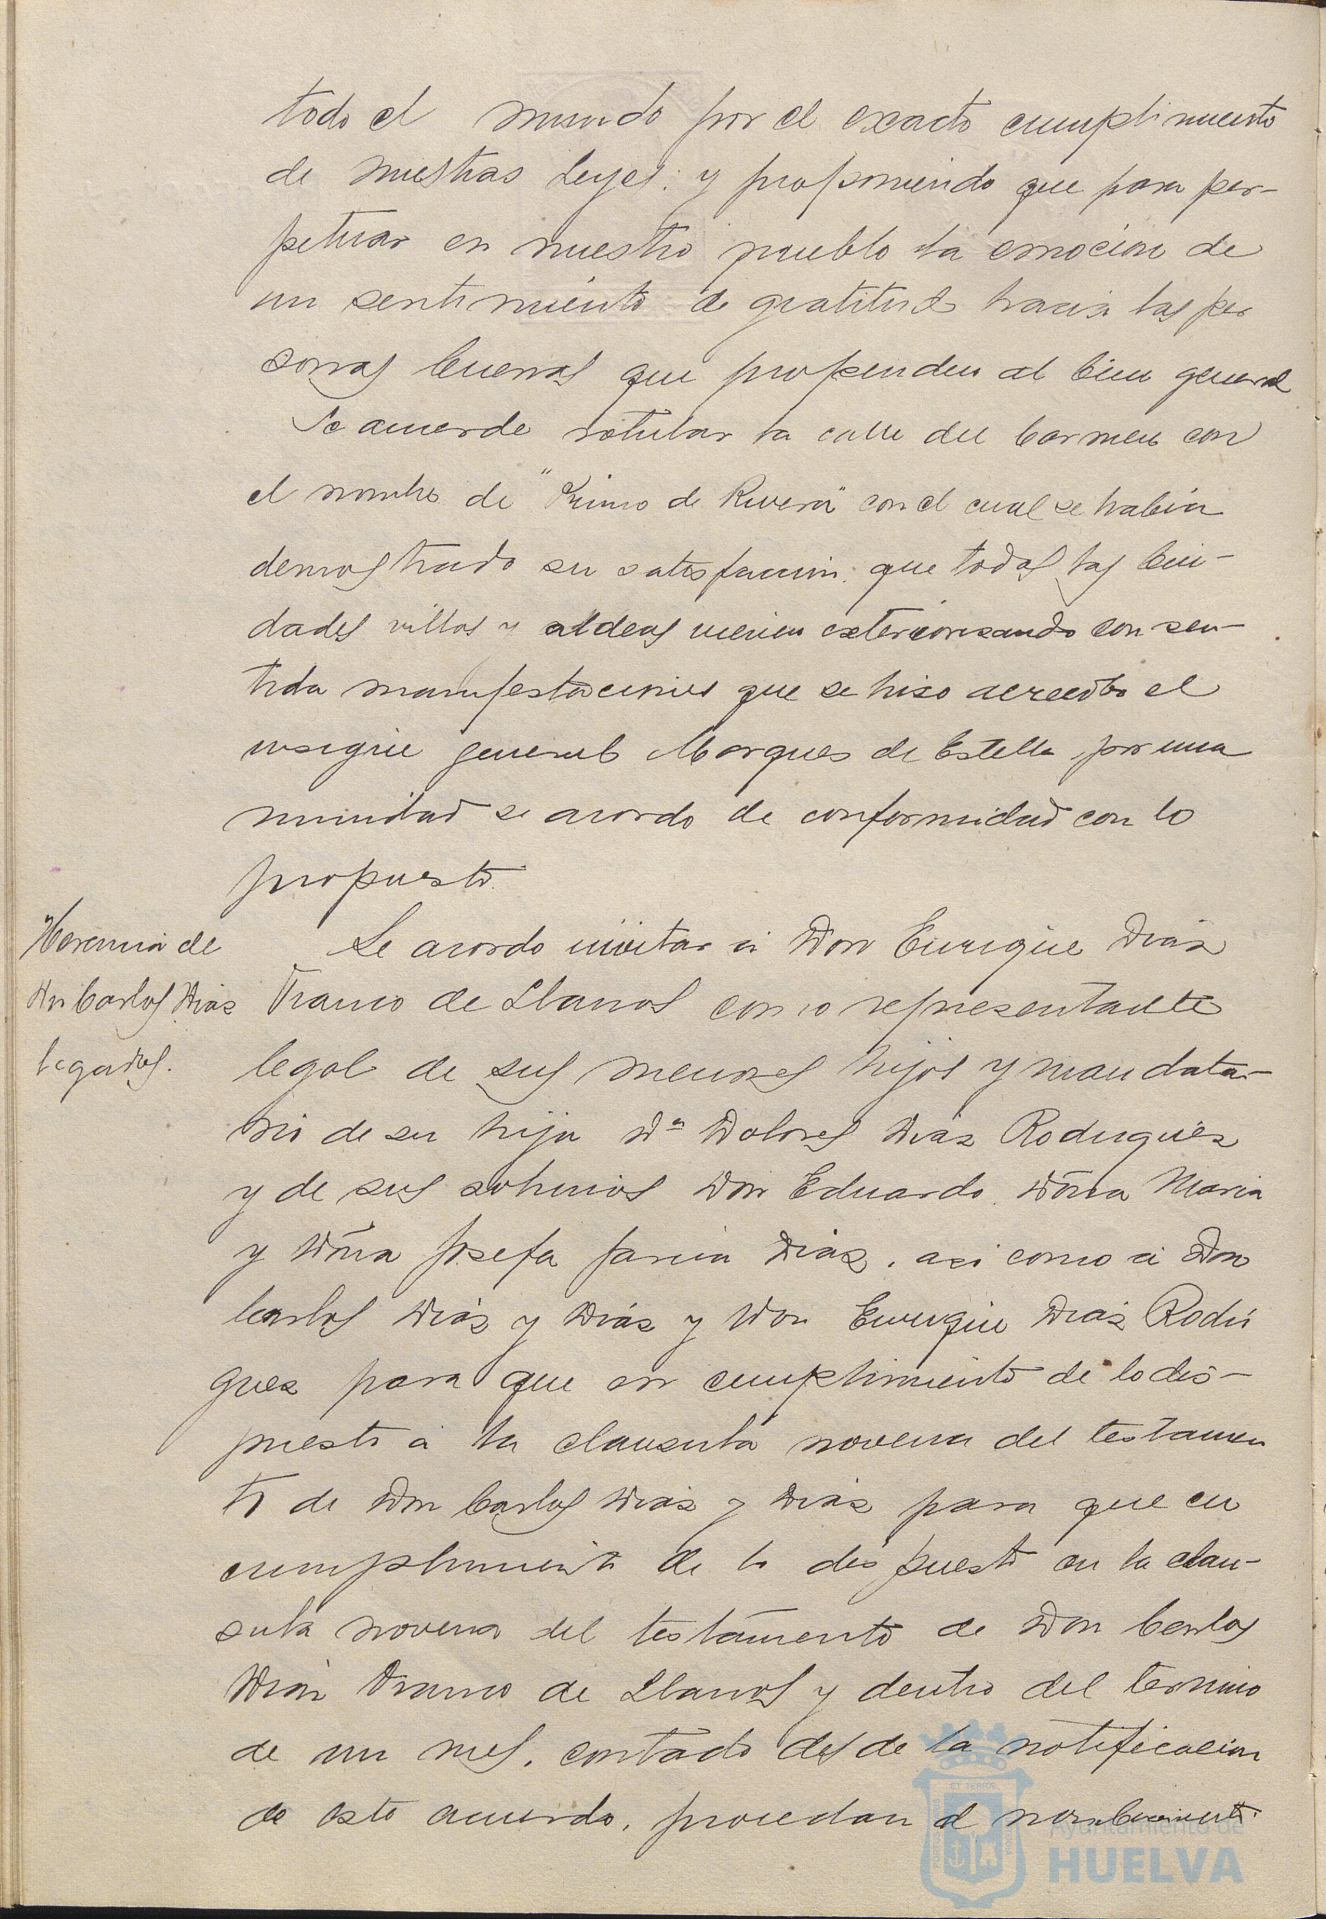 todo el mundo por el exacto cumplimiento
de nuestras Leyes: y proponiendo que para per-
petuar en nuestro pueblo la emocion de
un sentimiento de gratitud hacia las per
sonas buenas que propenden al bien general
Se acuerde rotular la calle del Carmen con
el nombre de "Primo de Rivera" con el cual se habia
demostrado su satisfaccion. que todas las Ciu-
dades villas y aldeas vienen exteriorisando con sen-
tida manifestaciones que se hiso acreedor el
insigne general Marques de Estella por una
nimidad se acordo de conformidad con lo
propuesto.
Herencia de
Dn Carlos Dias
legados.
Se acordo invitar á Don Enrique Dias
Franco de Llanos como representante
legal de sus menores hijos y mandata-
rio de su hija Dª Dolores Dias Rodrigues
y de sus sobrinos Don Eduardo. Doña Maria
y Doña Josefa Garcia Dias. asi como á Don
Carlos Dias y Dias y Don Enrique Dias Rodri
gues para que en cumplimiento de lo dis-
puesto á la clausula novena del testamen
to de Don Carlos Dias y Dias para que en
cumplimiento de lo dispuesto en la clau-
sula novena del testamento de Don Carlos
Dias Franco de Llanos y dentro del termino
de un mes. contado desde la notificacion
de este acuerdo. procedan al nombramiento
Ayuntamiento de
HUELVA